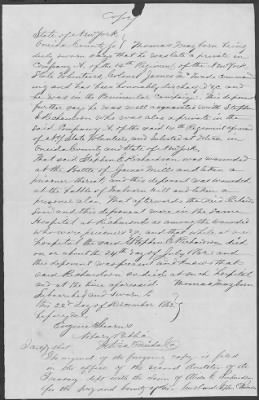 Copy
State of New York
Oneida County ss Thomas Mayborn being
duly sworn says that he was late a private in
Company of the 14th Regiment of the New York
State Volunteers, Colonel James commanding
and has been honorably discharged &c and
he was in the Peninsular Campaign. This deponent
further says he was well acquainted with Stephen
Richardson who was also a private in the
said Company of the said 14th Regiment of
N.Y. State Volunteers and enlisted at in
Oneida County and State of New York.
That said Stephen Richardson was wounded
at the Battle of Gaines Mills and taken a
prisoner there and this deponent was wounded
at the battle of Malvern Hill and taken a
prisoner also. That afterwards the said Richardson
and this deponent were in the same
Hospital at Richmond among the wounded
who were prisoners &c, and that while at said
hospital the said Stephen Richardson died
on or about the day of July 1862 and
this deponent was present and knows that
said Richardson so died at such hospital
and at the time aforesaid. Thomas Mayborn
Subscribed and sworn to
this 22d day of December 1862
before me,
Eugene Stearns
Notary Public
Oneida Co
I certify that
the original of the foregoing copy is filed
in the office of the second Auditor of the
Treasury with the claim of Richardson
for the pay and bounty of her husband